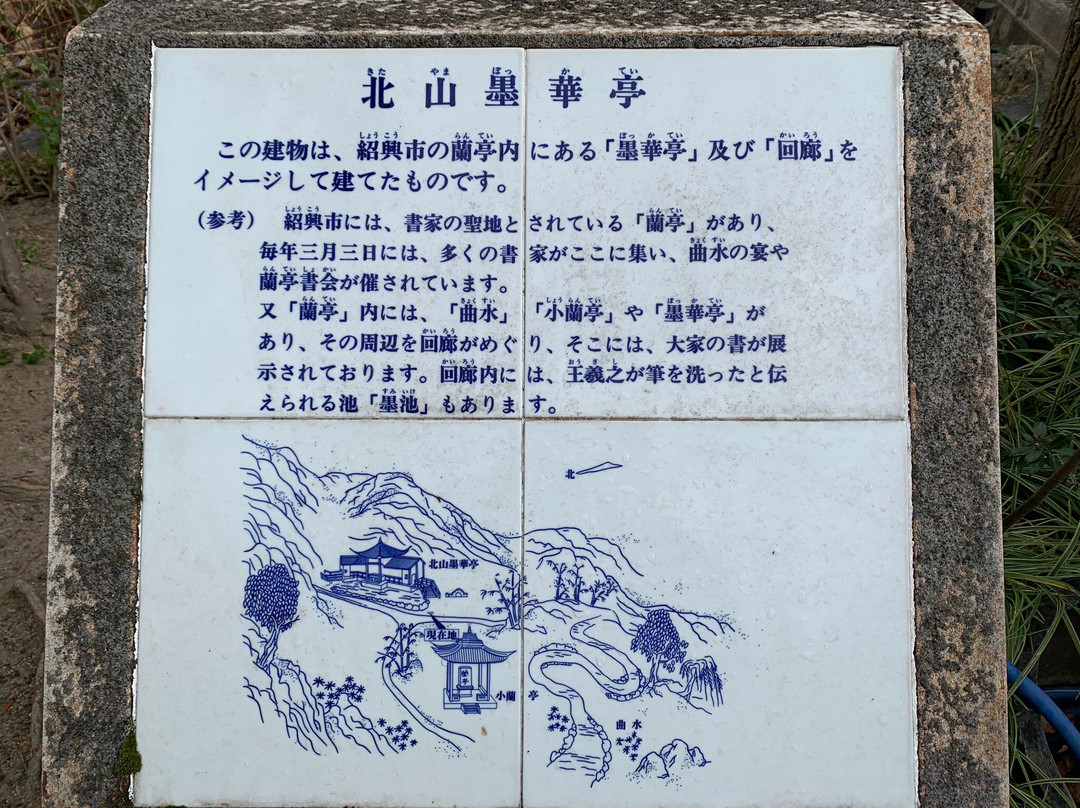 北山墨華亭
この建物は、紹興市の蘭亭内にある「墨華亭」及び「回廊」を
イメージして建てたものです。
（参考） 紹興市には、書家の聖地とされている「蘭亭」があり、
毎年三月三日には、多くの書家がここに集い、曲水の宴や
蘭亭書会が催されています。
又「蘭亭」内には、「曲水」「小蘭亭」や「墨華亭」が
あり、その周辺を回廊がめぐり、そこには、大家の書が展
示されております。回廊内には、王羲之が筆を洗ったと伝
えられる池「墨池」もあります。
北
北山墨華亭
現在地
小蘭亭
曲水